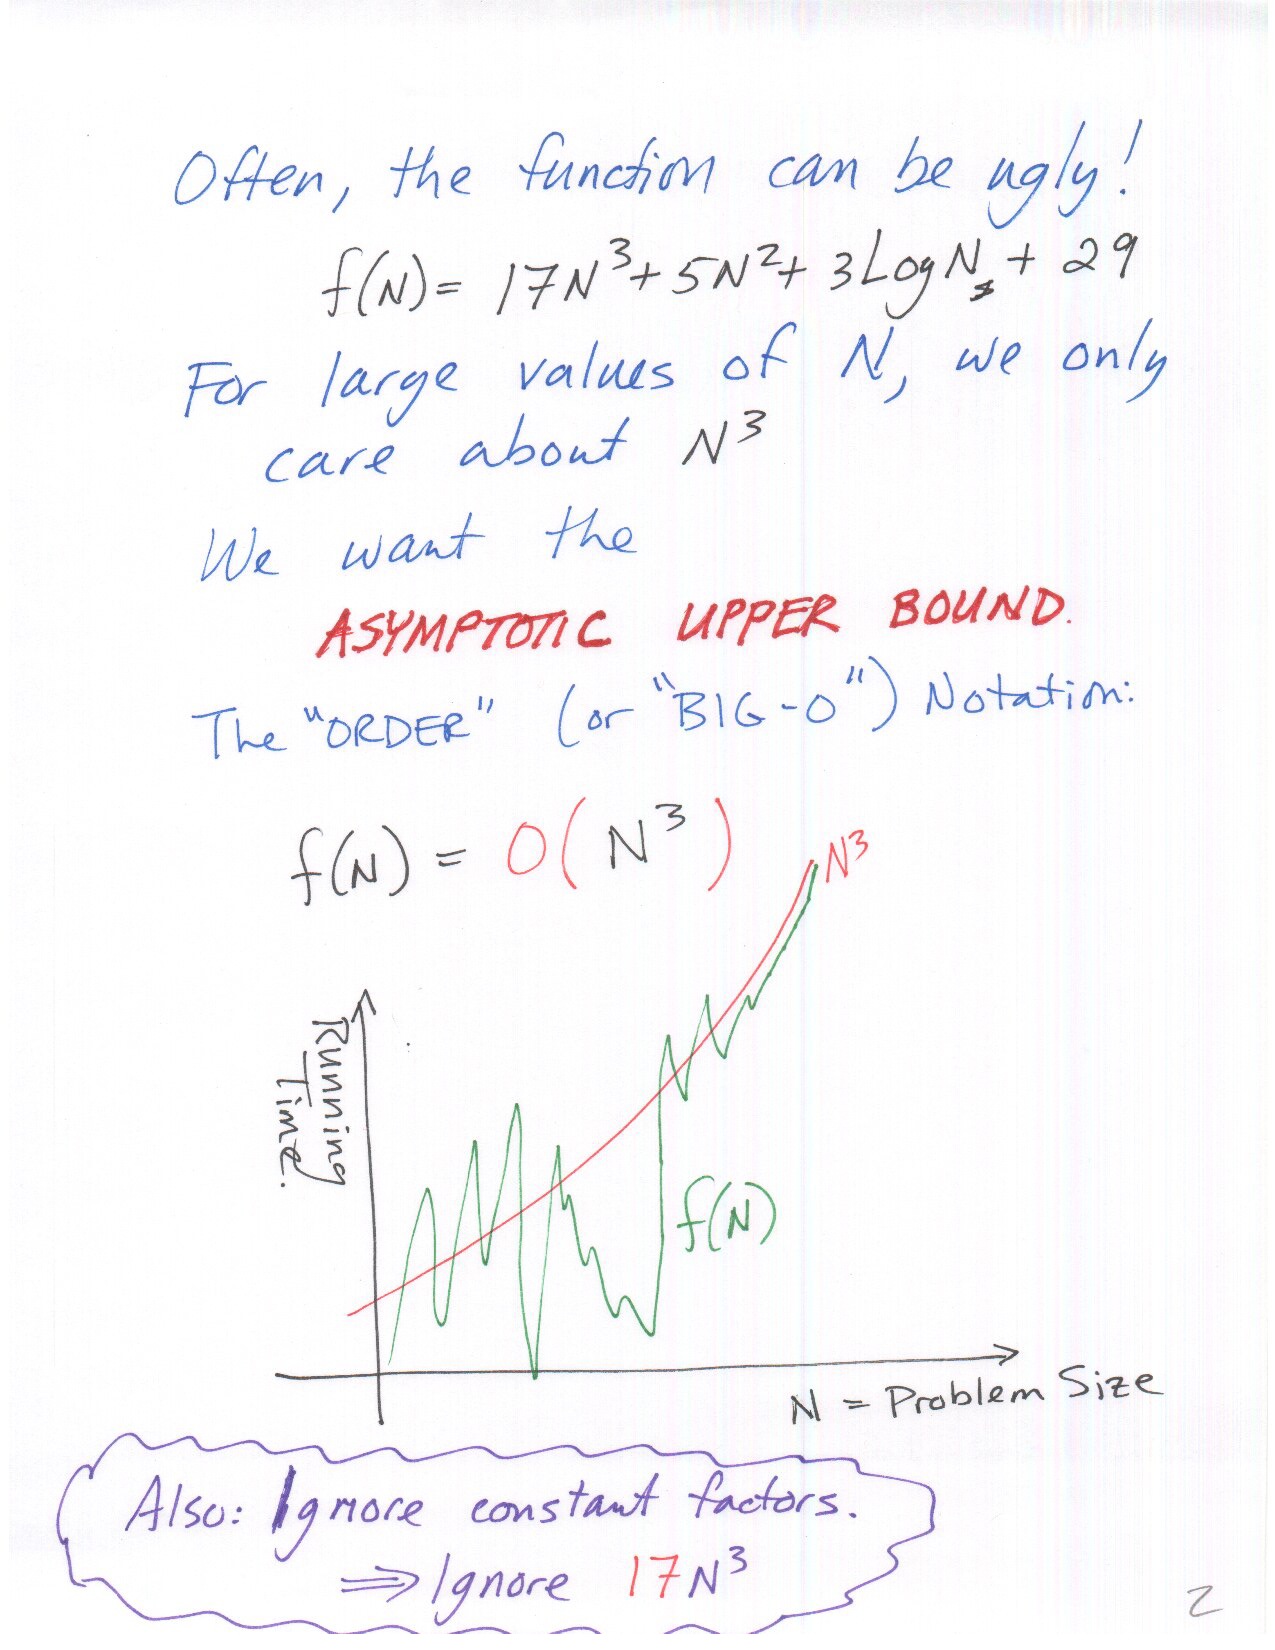 Often, the function can be ugly!
f(N) = 17N³ + 5N² + 3LogN₅ + 29
For large values of N, we only
care about N³
We want the
ASYMPTOTIC UPPER BOUND.
The "ORDER" (or "BIG-O") Notation:
f(N) = O(N³)
N³
Running
Time.
f(N)
N = Problem Size
Also: Ignore constant factors.
⇒ Ignore 17N³
2